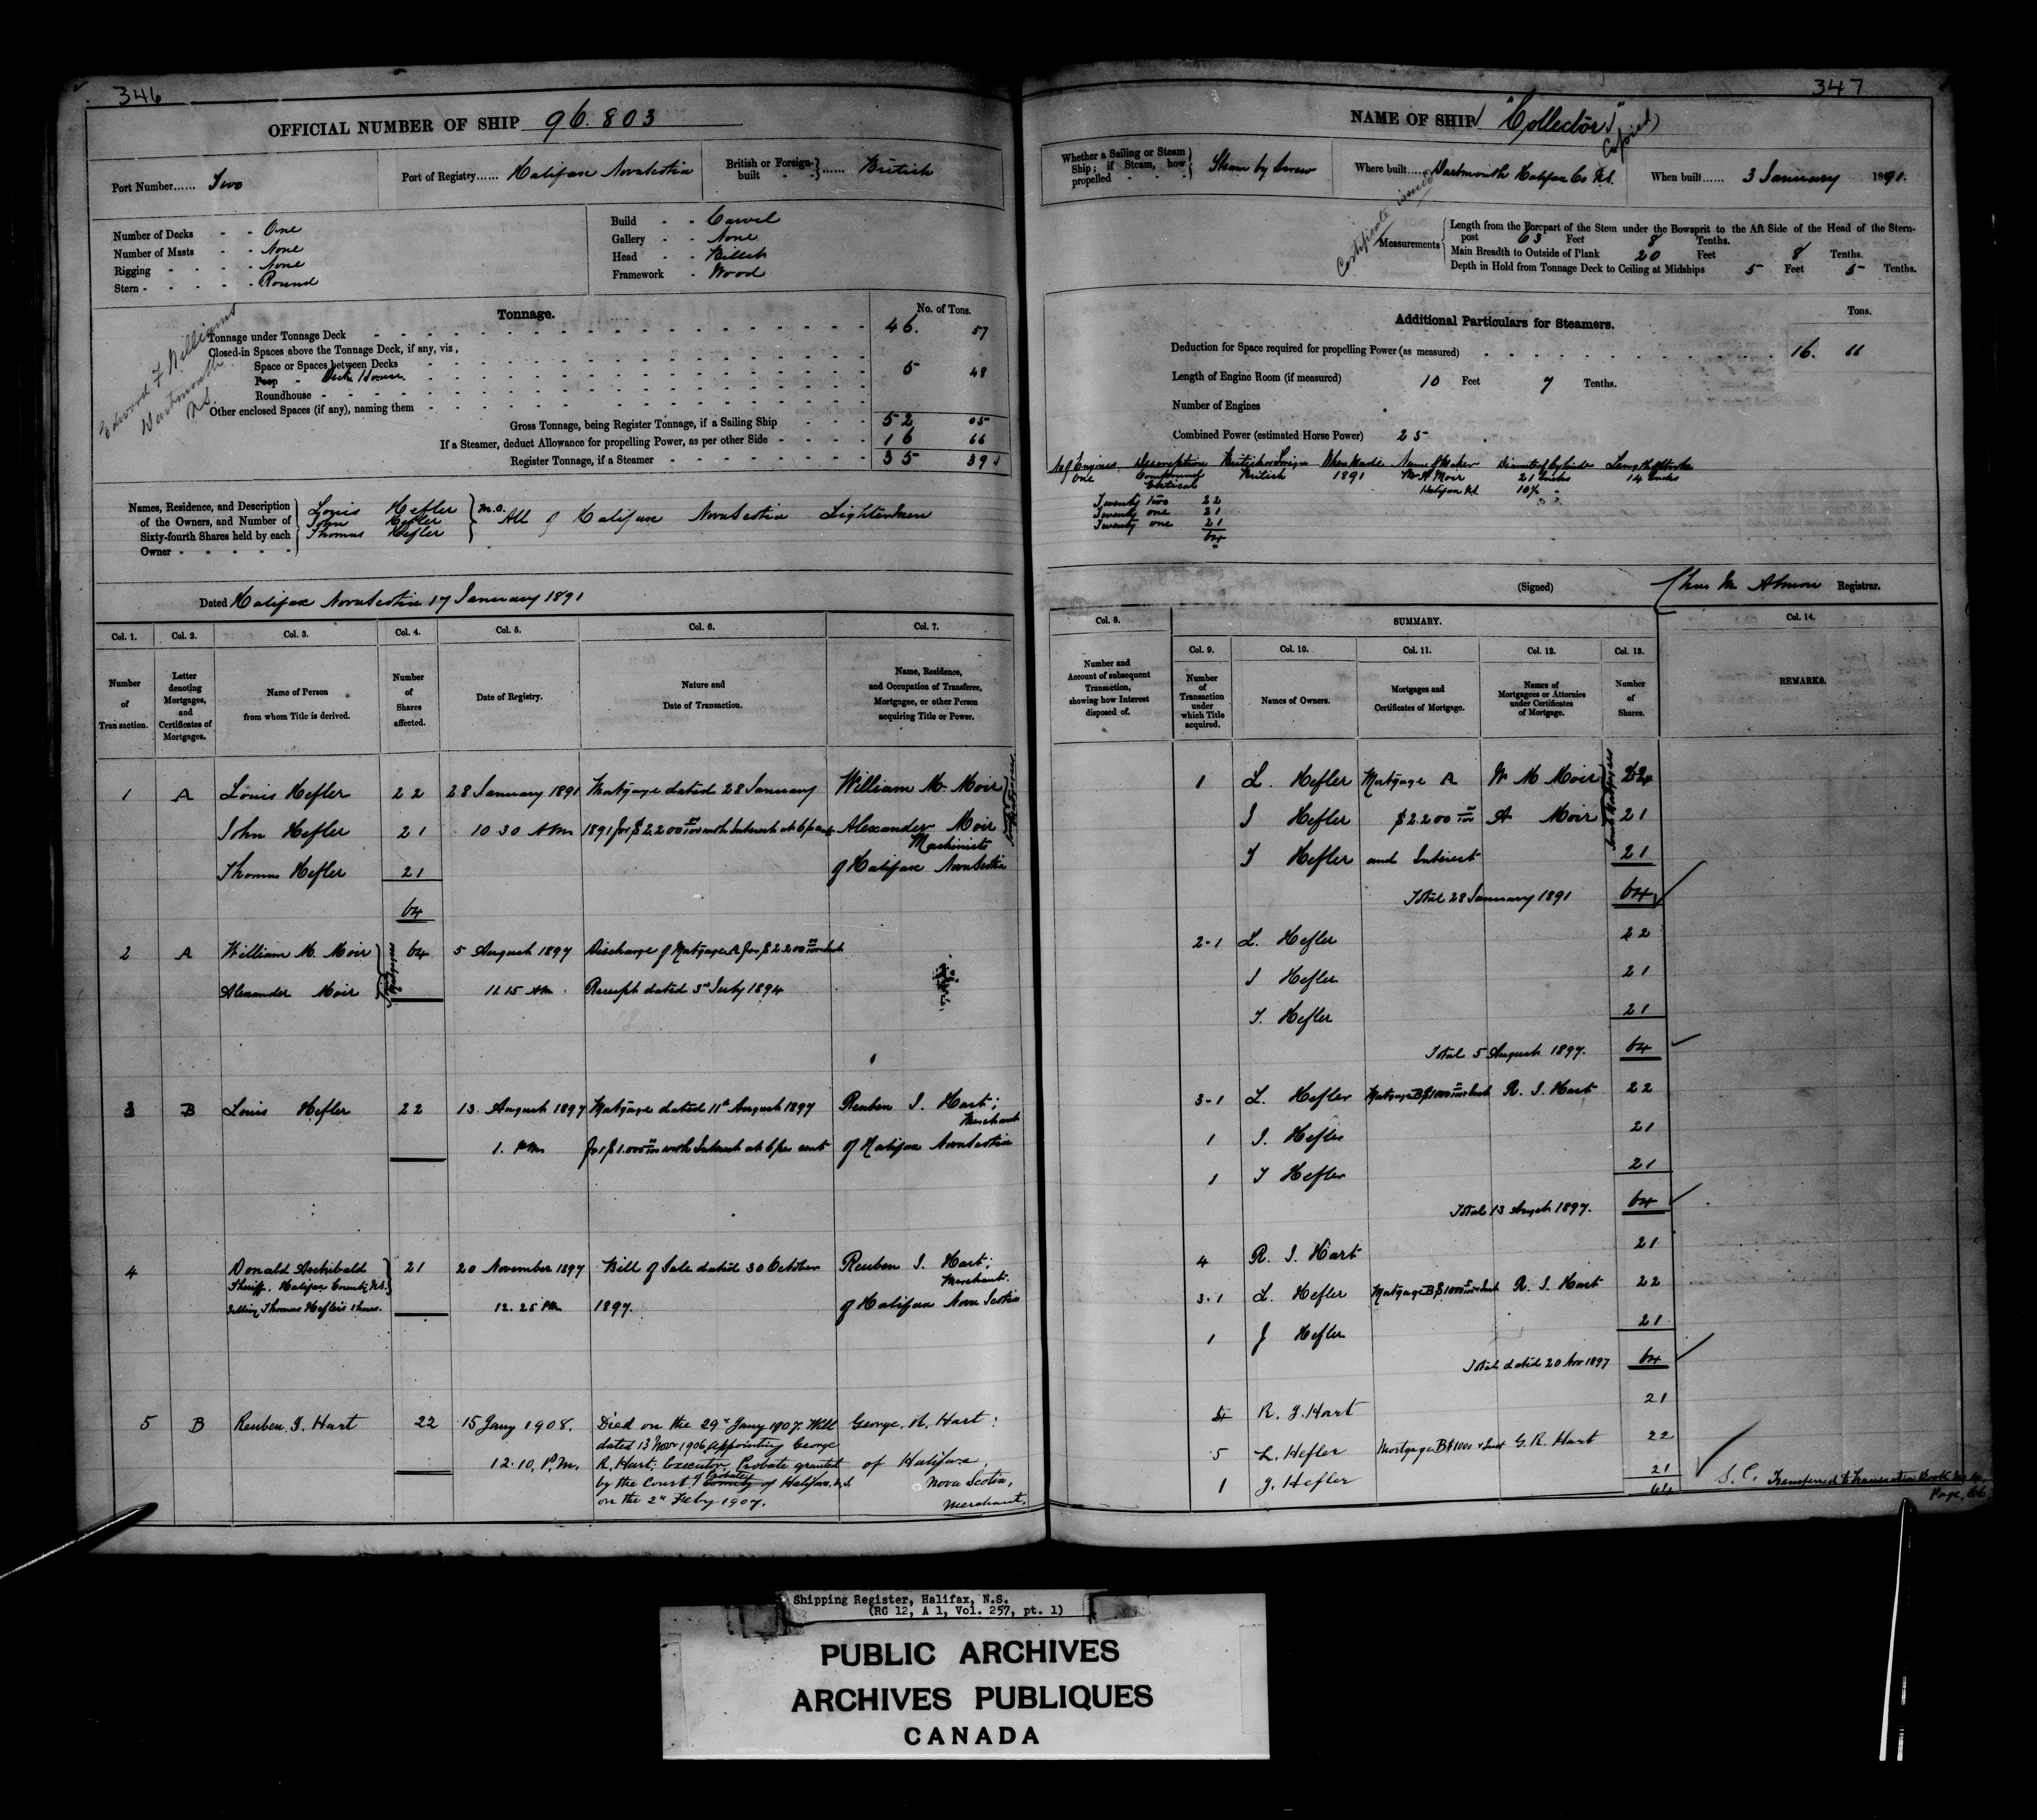 346
OFFICIAL NUMBER OF SHIP 96.803
Port Number...... Two
Port of Registry...... Halifax Nova Scotia
British or Foreign-built - - } ...... British
Number of Decks - - One
Number of Masts - - None
Rigging - - - - None
Stern - - - - - Round
Build - - Carvel
Gallery - - None
Head - - Billet
Framework - Wood
Edward F Williams
Dartmouth
N.S.
Tonnage.
No. of Tons.
Tonnage under Tonnage Deck 46. 57
Closed-in Spaces above the Tonnage Deck, if any, viz,
Space or Spaces between Decks
Poop - Deck House 5 48
Roundhouse
Other enclosed Spaces (if any), naming them
Gross Tonnage, being Register Tonnage, if a Sailing Ship 52 05
If a Steamer, deduct Allowance for propelling Power, as per other Side 16 66
Register Tonnage, if a Steamer 35 39
Names, Residence, and Description of the Owners, and Number of Sixty-fourth Shares held by each Owner
Louis Hefler
John Hefler
Thomas Hefler
M.O. All of Halifax Nova Scotia Lightermen
Dated Halifax Nova Scotia 17 January 1891
Col. 1. Col. 2. Col. 3. Col. 4. Col. 5. Col. 6. Col. 7.
Number of Transaction.
Letter denoting Mortgages, and Certificates of Mortgages.
Name of Person from whom Title is derived.
Number of Shares affected.
Date of Registry.
Nature and Date of Transaction.
Name, Residence, and Occupation of Transferee, Mortgagee, or other Person acquiring Title or Power.
1 A Louis Hefler 22 28 January 1891 Mortgage dated 28 January William M. Moir
John Hefler 21 10 30 AM 1891 for $2200 00/100 with Interest at 6 p cent Alexander Moir
Machinists
Thomas Hefler 21 of Halifax Nova Scotia
Joint Mortgagees
64
2 A William M. Moir 64 5 August 1897 Discharge of Mortgage A for $2200 00/100
Alexander Moir 11.15 AM Receipt dated 3rd July 1894
Joint Mortgagees
3 B Louis Hefler 22 13. August 1897 Mortgage dated 11th August 1897 Reuben I. Hart;
Merchant
1. PM for $1.000 00/100 with Interest at 6 per cent of Halifax Nova Scotia
4 Donald Archibald 21 20 November 1897 Bill of Sale dated 30 October Reuben I. Hart;
Sheriff. Halifax County N.S. Merchant.
Selling Thomas Hefler's shares. 12.25 PM 1897. of Halifax Nova Scotia
5 B Reuben I. Hart 22 15 Jany 1908. Died on the 29th Jany 1907. Will George. R. Hart:
dated 13 Novr 1906 appointing George
12.10. P.M. R. Hart, Executor, Probate granted of Halifax,
by the Court of Probate County of Halifax, N.S. Nova Scotia,
on the 2nd Feby 1907. Merchant.
347
NAME OF SHIP "Collector"
Certificate issued
Copied)
Whether a Sailing or Steam Ship; if Steam, how propelled - - - } Steam by Screw
Where built...... Dartmouth Halifax Co N.S.
When built...... 3 January 1891.
Measurements
Length from the Forepart of the Stem under the Bowsprit to the Aft Side of the Head of the Stern-
post 63 Feet 8 Tenths.
Main Breadth to Outside of Plank 20 Feet 8 Tenths.
Depth in Hold from Tonnage Deck to Ceiling at Midships 5 Feet 5 Tenths.
Additional Particulars for Steamers.
Tons.
Deduction for Space required for propelling Power (as measured) 16. 66
Length of Engine Room (if measured) 10 Feet 7 Tenths.
Number of Engines
Combined Power (estimated Horse Power) 25
No of Engines Description British or Foreign When Made Name of Maker Diameter of Cylinder Length of Stroke
One Compound British 1891 Moir 21 Inches 14 Inches
Vertical Halifax N.S. 10½ "
Twenty two 22
Twenty one 21
Twenty one 21
64
(Signed) Chas M Almon Registrar.
Col. 8. SUMMARY. Col. 14.
Col. 9. Col. 10. Col. 11. Col. 12. Col. 13.
Number and Account of subsequent Transaction, showing how Interest disposed of.
Number of Transaction under which Title acquired.
Names of Owners.
Mortgages and Certificates of Mortgage.
Names of Mortgagees or Attornies under Certificates of Mortgage.
Number of Shares.
REMARKS.
1 L. Hefler Mortgage A W M Moir 22
J Hefler $2200 00/100 A Moir 21
T Hefler and Interest 21
Joint Mortgagees
Total 28 January 1891 64
2-1 L. Hefler 22
J Hefler 21
T. Hefler 21
Total 5 August 1897. 64
3-1 L. Hefler Mortgage B $1000 R. I. Hart 22
1 J. Hefler 21
1 T Hefler 21
Total 13 August 1897. 64
4 R. I. Hart 21
3.1 L. Hefler Mortgage B $1000 R. I. Hart 22
1 J Hefler 21
Total dated 20 Nov 1897 64
4 R. I. Hart 21
5 L. Hefler Mortgage B $1000 & Int G. R. Hart 22
1 J. Hefler 21
64
S.C. Transferred to Transaction Book
Page, 66
Shipping Register, Halifax, N.S.
(RG 12, A 1, Vol. 257, pt. 1)
PUBLIC ARCHIVES
ARCHIVES PUBLIQUES
CANADA